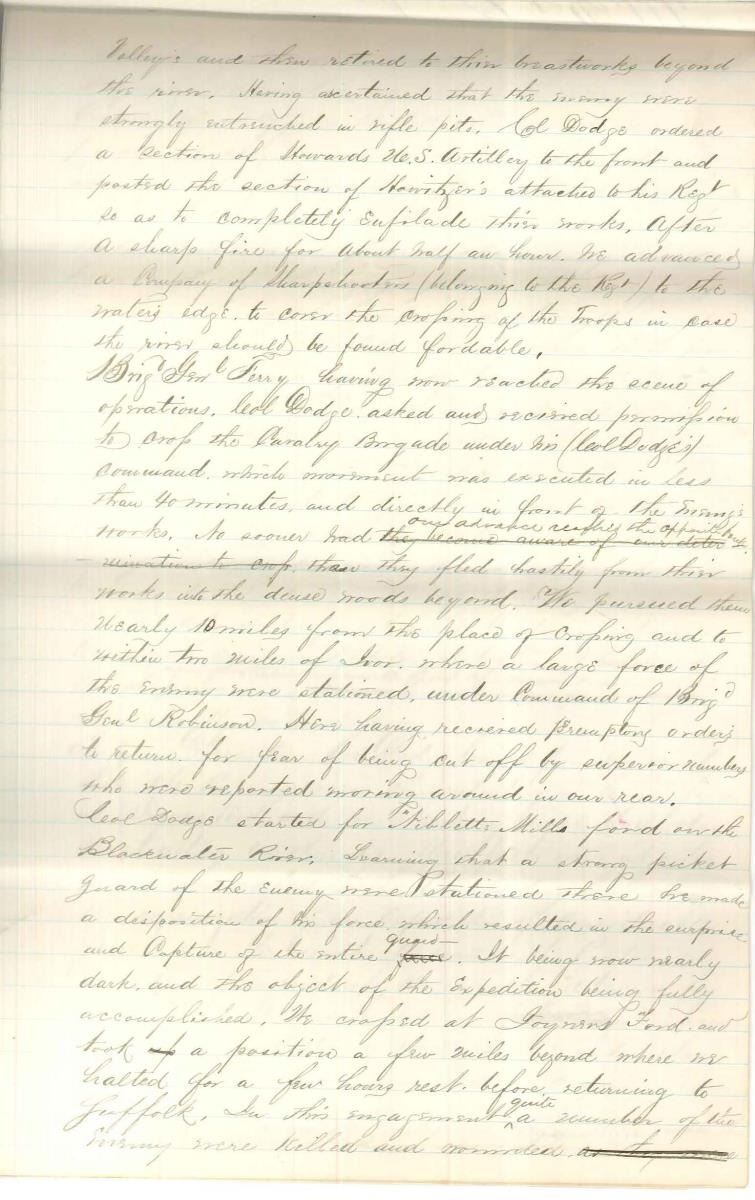 Volley's and then retired to thier breastworks beyond
the river. Having ascertained that the enemy were
strongly entrenched in rifle pits. Col Dodge ordered
a section of Howards U.S. Artillery to the front and
posted the section of Howitzer's attached to his Regt
so as to completely enfilade thier works. After
a sharp fire for about half an hour. He advanced
a Company of Sharpshooters (belonging to the Regt) to the
water's edge. to cover the crossing of the Troops in case
the river should be found fordable.
Brigd Genl Ferry having now reached the scene of
operations. Col Dodge asked and recieved permission
to cross the Cavalry Brigade under his (Col Dodge's)
command. which movement was executed in less
than 40 minutes. and directly in front of the Enemy's
our advance reached the opposite bank
works. No sooner had they become aware of our deter
minations to cross, than they fled hastily from thier
works into the dense woods beyond. We pursued them
nearly 10 miles from the place of crossing and to
within two miles of Ivor. where a large force of
the enemy were stationed. under Command of Brigd
Genl Robinson. Here having recieved premptory orders
to return. for fear of being cut off by superior numbers
who were reported moving around in our rear.
Col Dodge started for Niblett's Mills ford on the
Blackwater River. Learning that a strong picket
guard of the Enemy were stationed there he made
a disposition of his force which resulted in the surprise
guard
and Capture of the entire . It being now nearly
dark. and the object of the Expedition being fully
accomplished. We crossed at Joyners Ford. and
took up a position a few miles beyond where we
halted for a few hours rest. before returning to
quite
Suffolk. In this engagement a number of the
Enemy were killed and wounded as they were